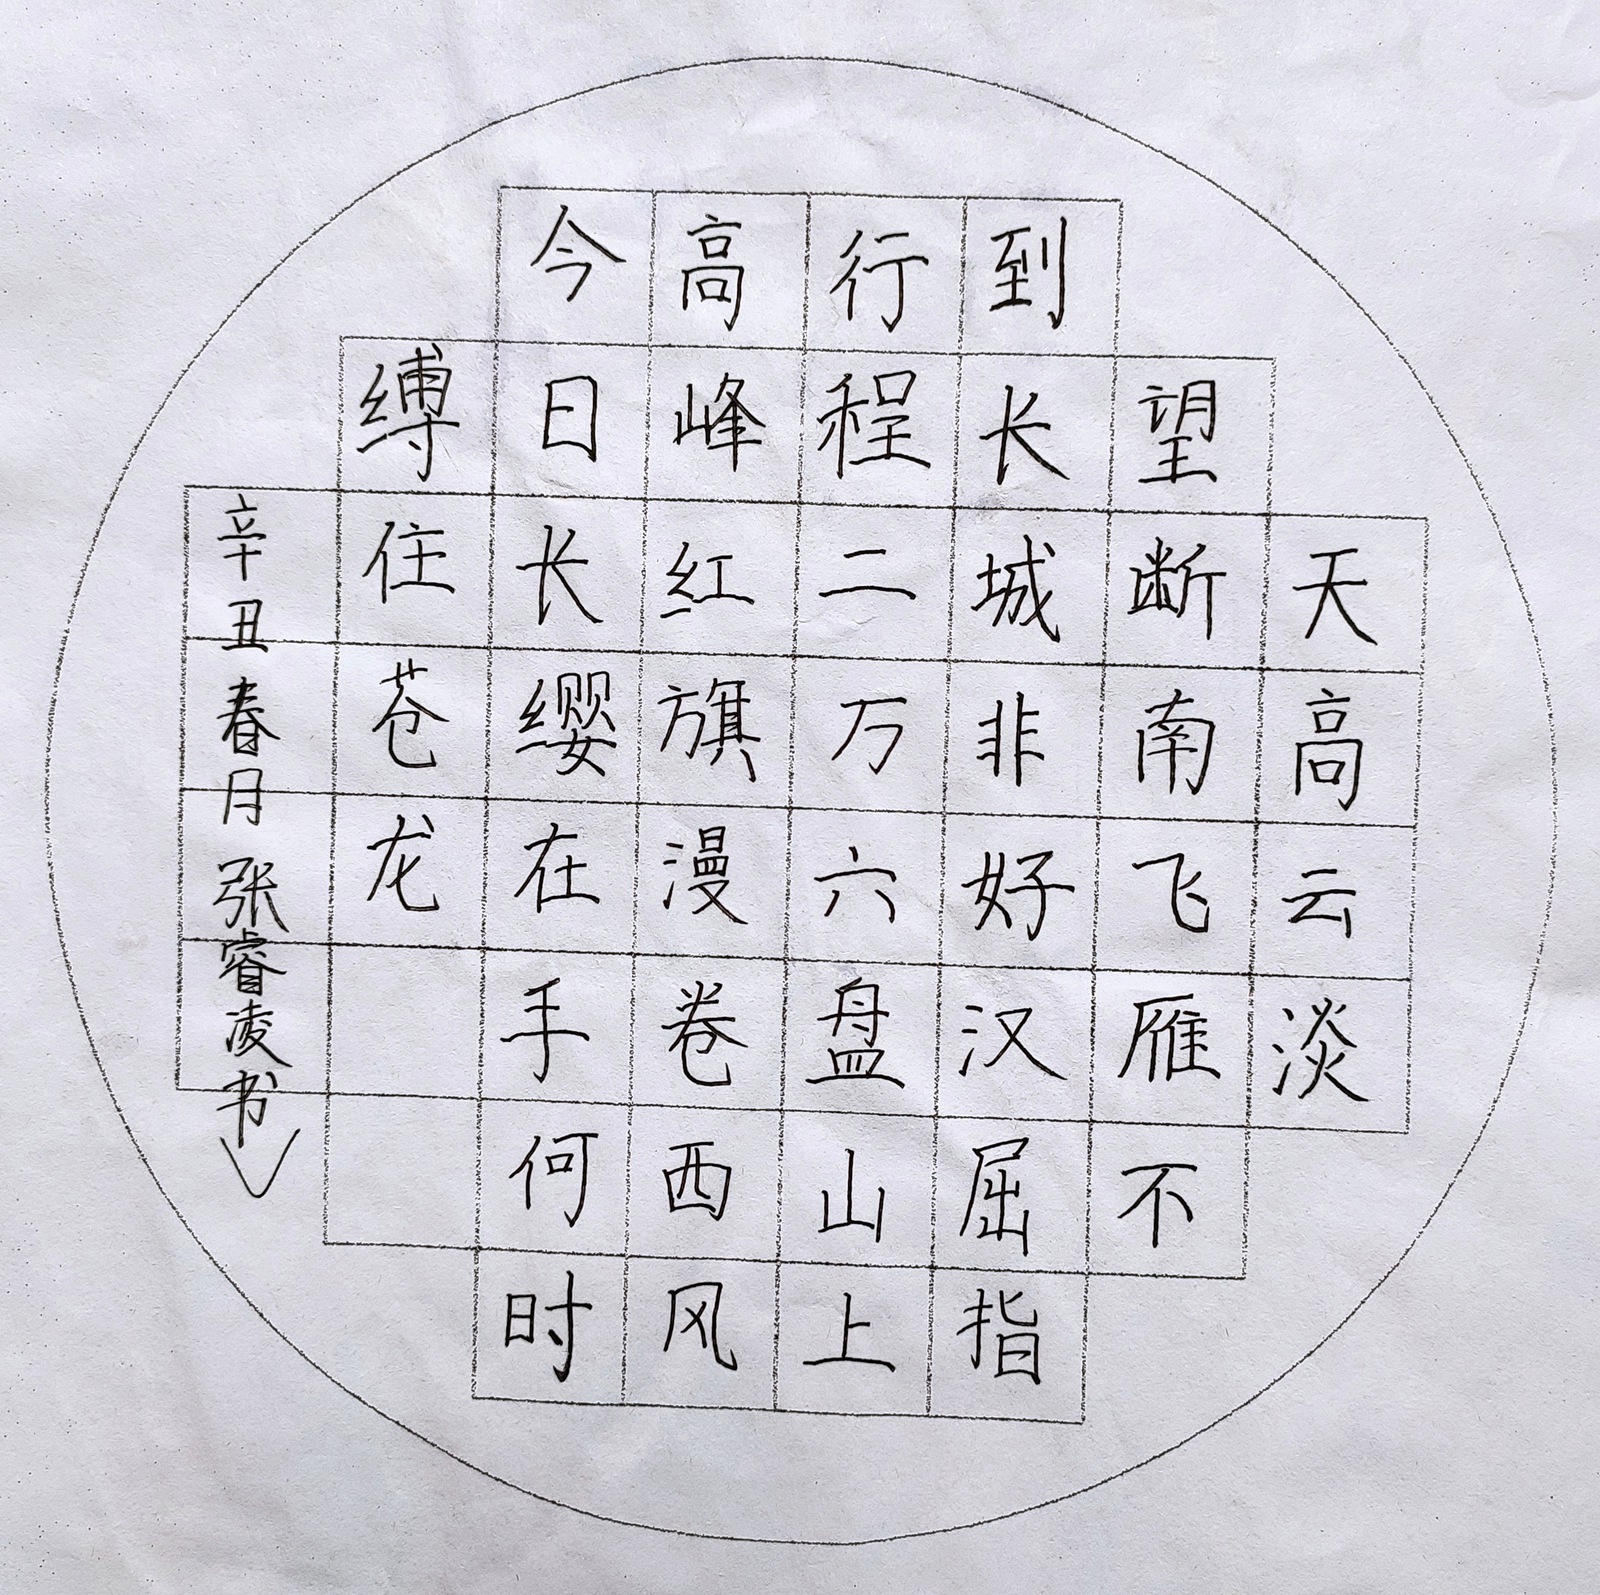 天高云淡
望断南飞雁不
到长城非好汉屈指
行程二万六盘山上
高峰红旗漫卷西风
今日长缨在手何时
缚住苍龙
辛丑春月张睿凌书